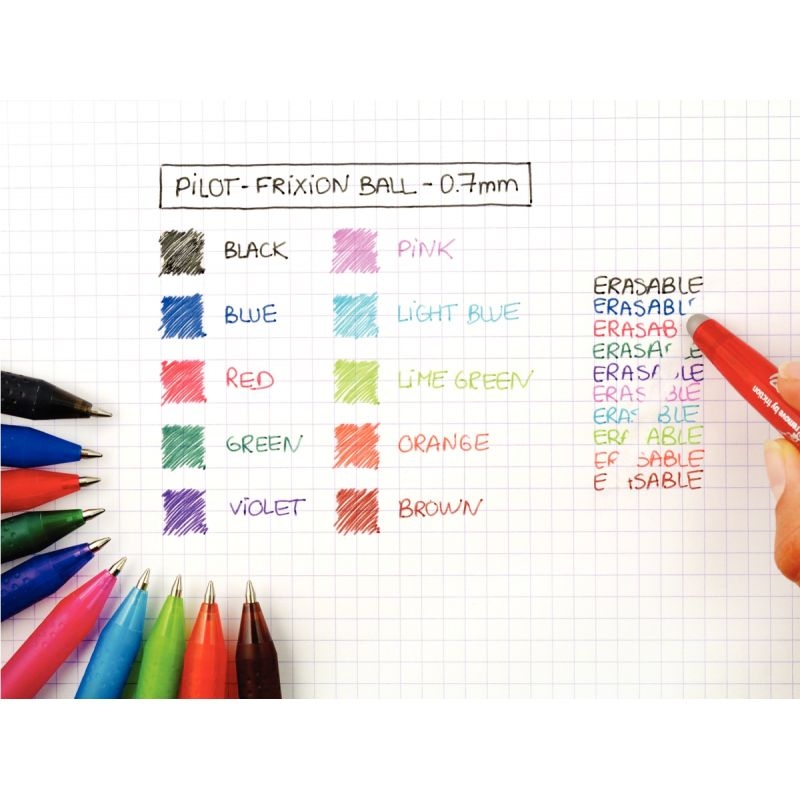 PILOT-FRIXION BALL-0.7mm
BLACK
BLUE
RED
GREEN
VIOLET
PINK
LIGHT BLUE
LIME GREEN
ORANGE
BROWN
ERASABLE
ERASABL
ERASAB
ERASA
ERASA LE
ERAS BLE
ERAS BLE
ER ABLE
E SABLE
E SABLE
remove by friction